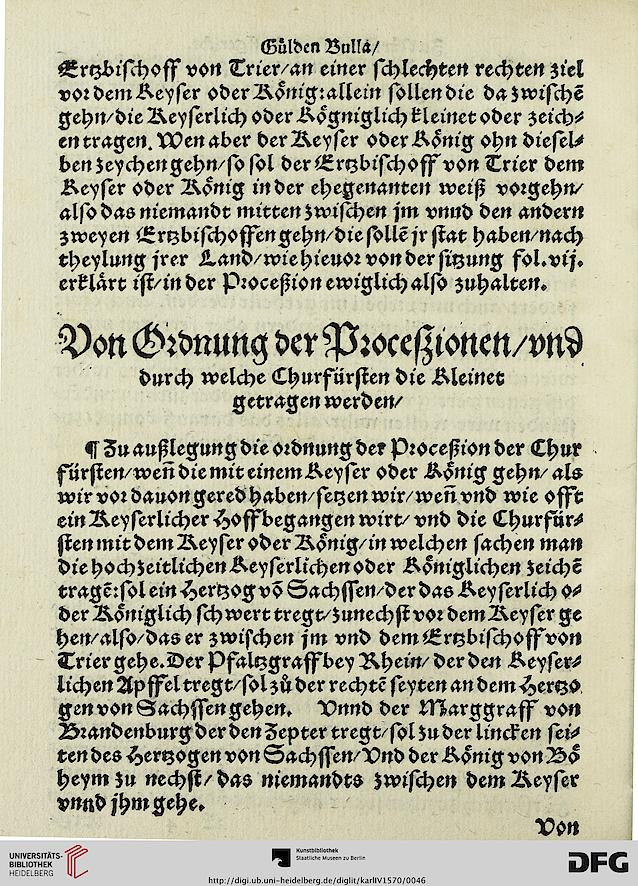 Gülden Bulla/
Ertzbischoff von Trier/an einer schlechten rechten ziel
vor dem Keyser oder König: allein sollen die da zwischē
gehn/die Keyserlich oder Kögniglich kleinet oder zeich⸗
en tragen. Wen aber der Keyser oder König ohn diesel⸗
ben zeychen gehn/so sol der Ertzbischoff von Trier dem
Keyser oder König in der ehegenanten weiß vorgehn/
also das niemandt mitten zwischen jm vnnd den andern
zweyen Ertzbischoffen gehn/die sollē jr stat haben/nach
theylung jrer Land/wie hieuor von der sitzung fol. vij.
erklärt ist/in der Proceßion ewiglich also zuhalten.
Von Ordnung der Proceßionen/vnd
durch welche Churfürsten die Kleinet
getragen werden/
¶ Zu außlegung die ordnung der Proceßion der Chur
fürsten/weñ die mit einem Keyser oder König gehn/ als
wir vor dauon gered haben/setzen wir/weñ vnd wie offt
ein Keyserlicher Hoff begangen wirt/ vnd die Churfür⸗
sten mit dem Keyser oder König/in welchen sachen man
die hochzeitlichen Keyserlichen oder Königlichen zeichē
tragē: sol ein Hertzog vō Sachssen/der das Keyserlich o⸗
der Königlich schwert tregt/zunechst vor dem Keyser ge
hen/also/das er zwischen jm vnd dem Ertzbischoff von
Trier gehe. Der Pfaltzgraff bey Rhein/ der den Keyser⸗
lichen Apffel tregt/sol zů der rechtē seyten an dem Hertzo
gen von Sachssen gehen. Vnnd der Marggraff von
Brandenburg der den Zepter tregt/sol zu der lincken sei⸗
ten des Hertzogen von Sachssen/Vnd der König von Bö
heym zu nechst/das niemandts zwischen dem Keyser
vnnd jhm gehe.
Von
UNIVERSITÄTS-
BIBLIOTHEK
HEIDELBERG
Kunstbibliothek
Staatliche Museen zu Berlin
DFG
http://digi.ub.uni-heidelberg.de/diglit/karlIV1570/0046